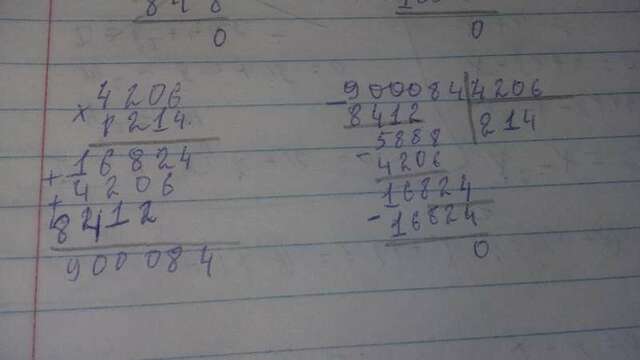 0
0
4206
× 1214
+ 16824
4206
+ 8412
900084
- 900084 4206
8412 214
5888
- 4206
16824
- 16824
0